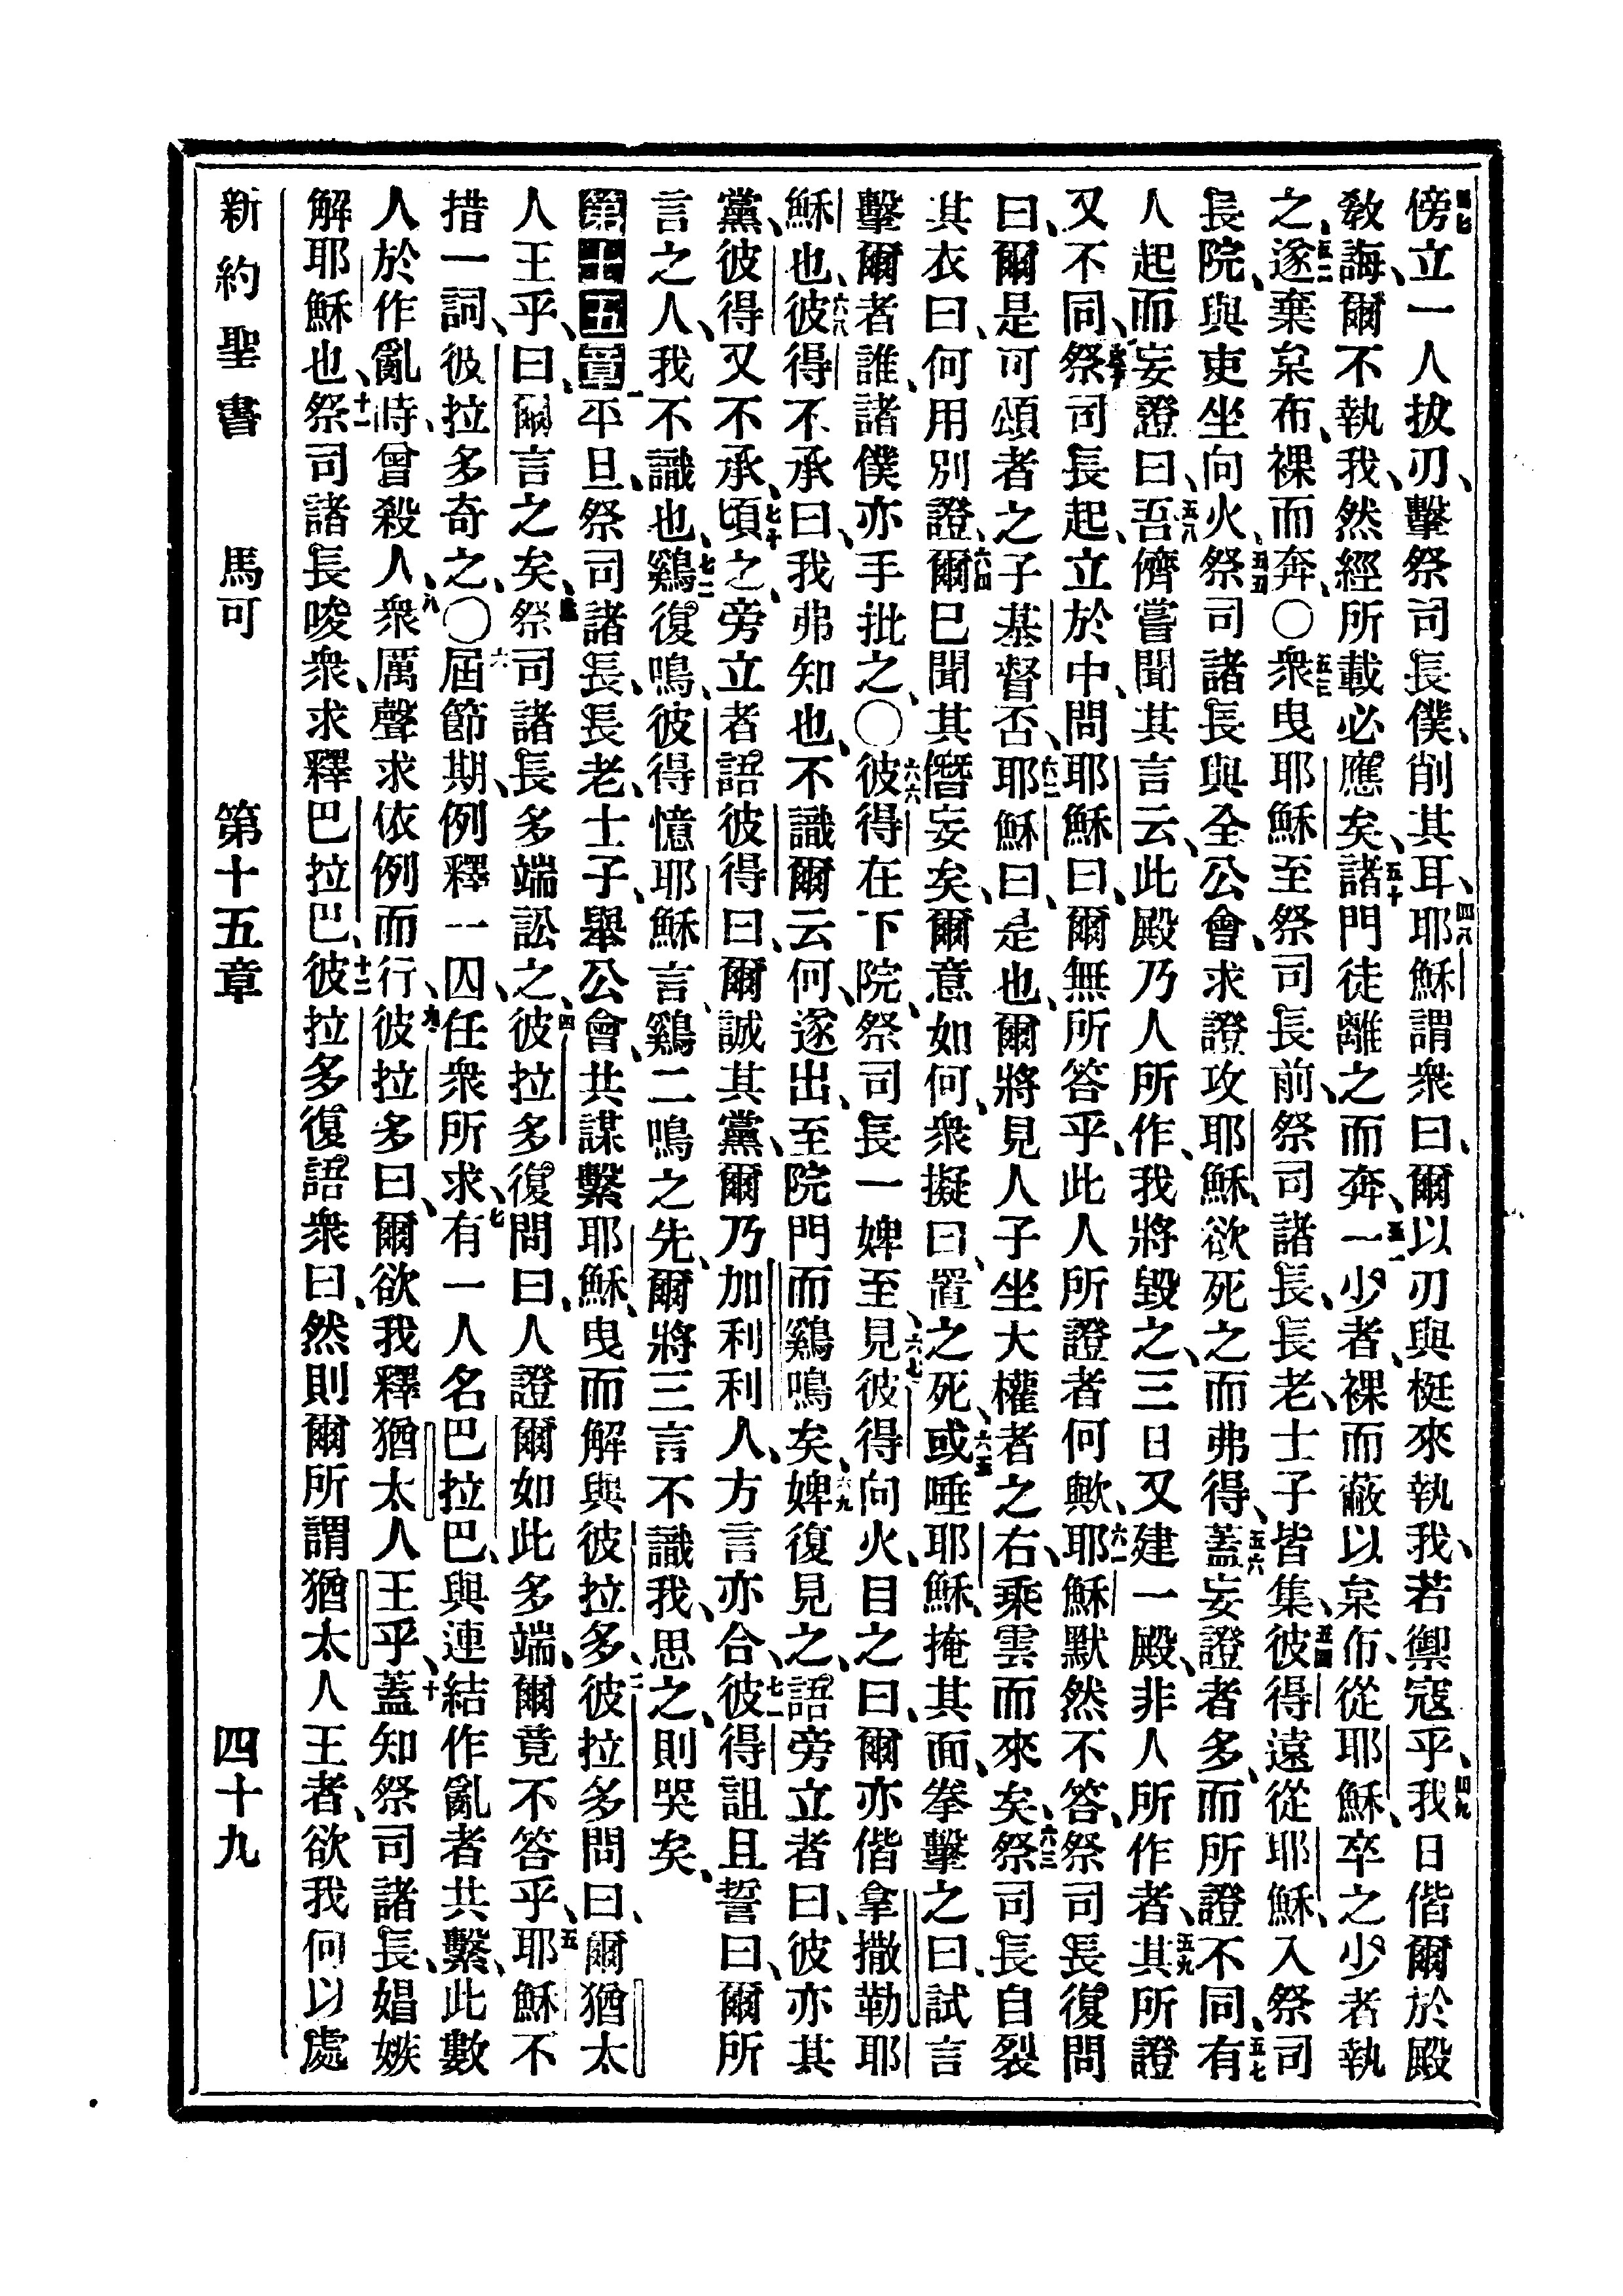 四七傍立一人拔刃、擊祭司長僕、削其耳、四八耶穌謂衆曰、爾以刃與梃來執我、若禦寇乎、四九我日偕爾於殿
敎誨、爾不執我、然經所載必應矣、五十諸門徒離之而奔、五一一少者、裸而蔽以枲布、從耶穌、卒之少者執
之、五二遂棄枲布、裸而奔、〇五三衆曳耶穌至祭司長前、祭司諸長、長老、士子皆集、五四彼得遠從耶穌、入祭司
長院、與吏坐向火、五五祭司諸長與全公會、求證攻耶穌、欲死之而弗得、五六蓋妄證者多、而所證不同、五七有
人起而妄證曰、五八吾儕嘗聞其言云、此殿乃人所作、我將毀之、三日又建一殿、非人所作者、五九其所證
又不同、六十祭司長起、立於中、問耶穌曰、爾無所答乎、此人所證者何歟、六一耶穌默然不答、祭司長復問
曰、爾是可頌者之子基督否、六二耶穌曰、是也、爾將見人子坐大權者之右、乘雲而來矣、六三祭司長自裂
其衣曰、何用別證、六四爾已聞其僭妄矣、爾意如何、衆擬曰、置之死、六五或唾耶穌、掩其面、拳擊之曰、試言
擊爾者誰、諸僕亦手批之、〇六六彼得在下院、祭司長一婢至、六七見彼得向火、目之曰、爾亦偕拿撒勒耶
穌也、六八彼得不承曰、我弗知也、不識爾云何、遂出、至院門而鷄鳴矣、六九婢復見之、語旁立者曰、彼亦其
黨、彼得又不承、七十頃之、旁立者語彼得曰、爾誠其黨、爾乃加利利人、方言亦合、七一彼得詛且誓曰、爾所
言之人、我不識也、七二鷄復鳴、彼得憶耶穌言、鷄二鳴之先、爾將三言不識我、思之、則哭矣、
第十五章 一平旦、祭司諸長、長老、士子、舉公會、共謀繫耶穌、曳而解與彼拉多、二彼拉多問曰、爾猶太
人王乎、曰、爾言之矣、三祭司諸長多端訟之、四彼拉多復問曰、人證爾如此多端、爾竟不答乎、五耶穌不
措一詞、彼拉多奇之、〇六屆節期、例釋一囚、任衆所求、七有一人名巴拉巴、與連結作亂者共繫、此數
人於作亂時、曾殺人、八衆厲聲求依例而行、九彼拉多曰、爾欲我釋猶太人王乎、十蓋知祭司諸長、娼嫉
解耶穌也、十一祭司諸長唆衆、求釋巴拉巴、十二彼拉多復語衆曰、然則爾所謂猶太人王者、欲我何以處
新約聖書 馬可 第十五章 四十九